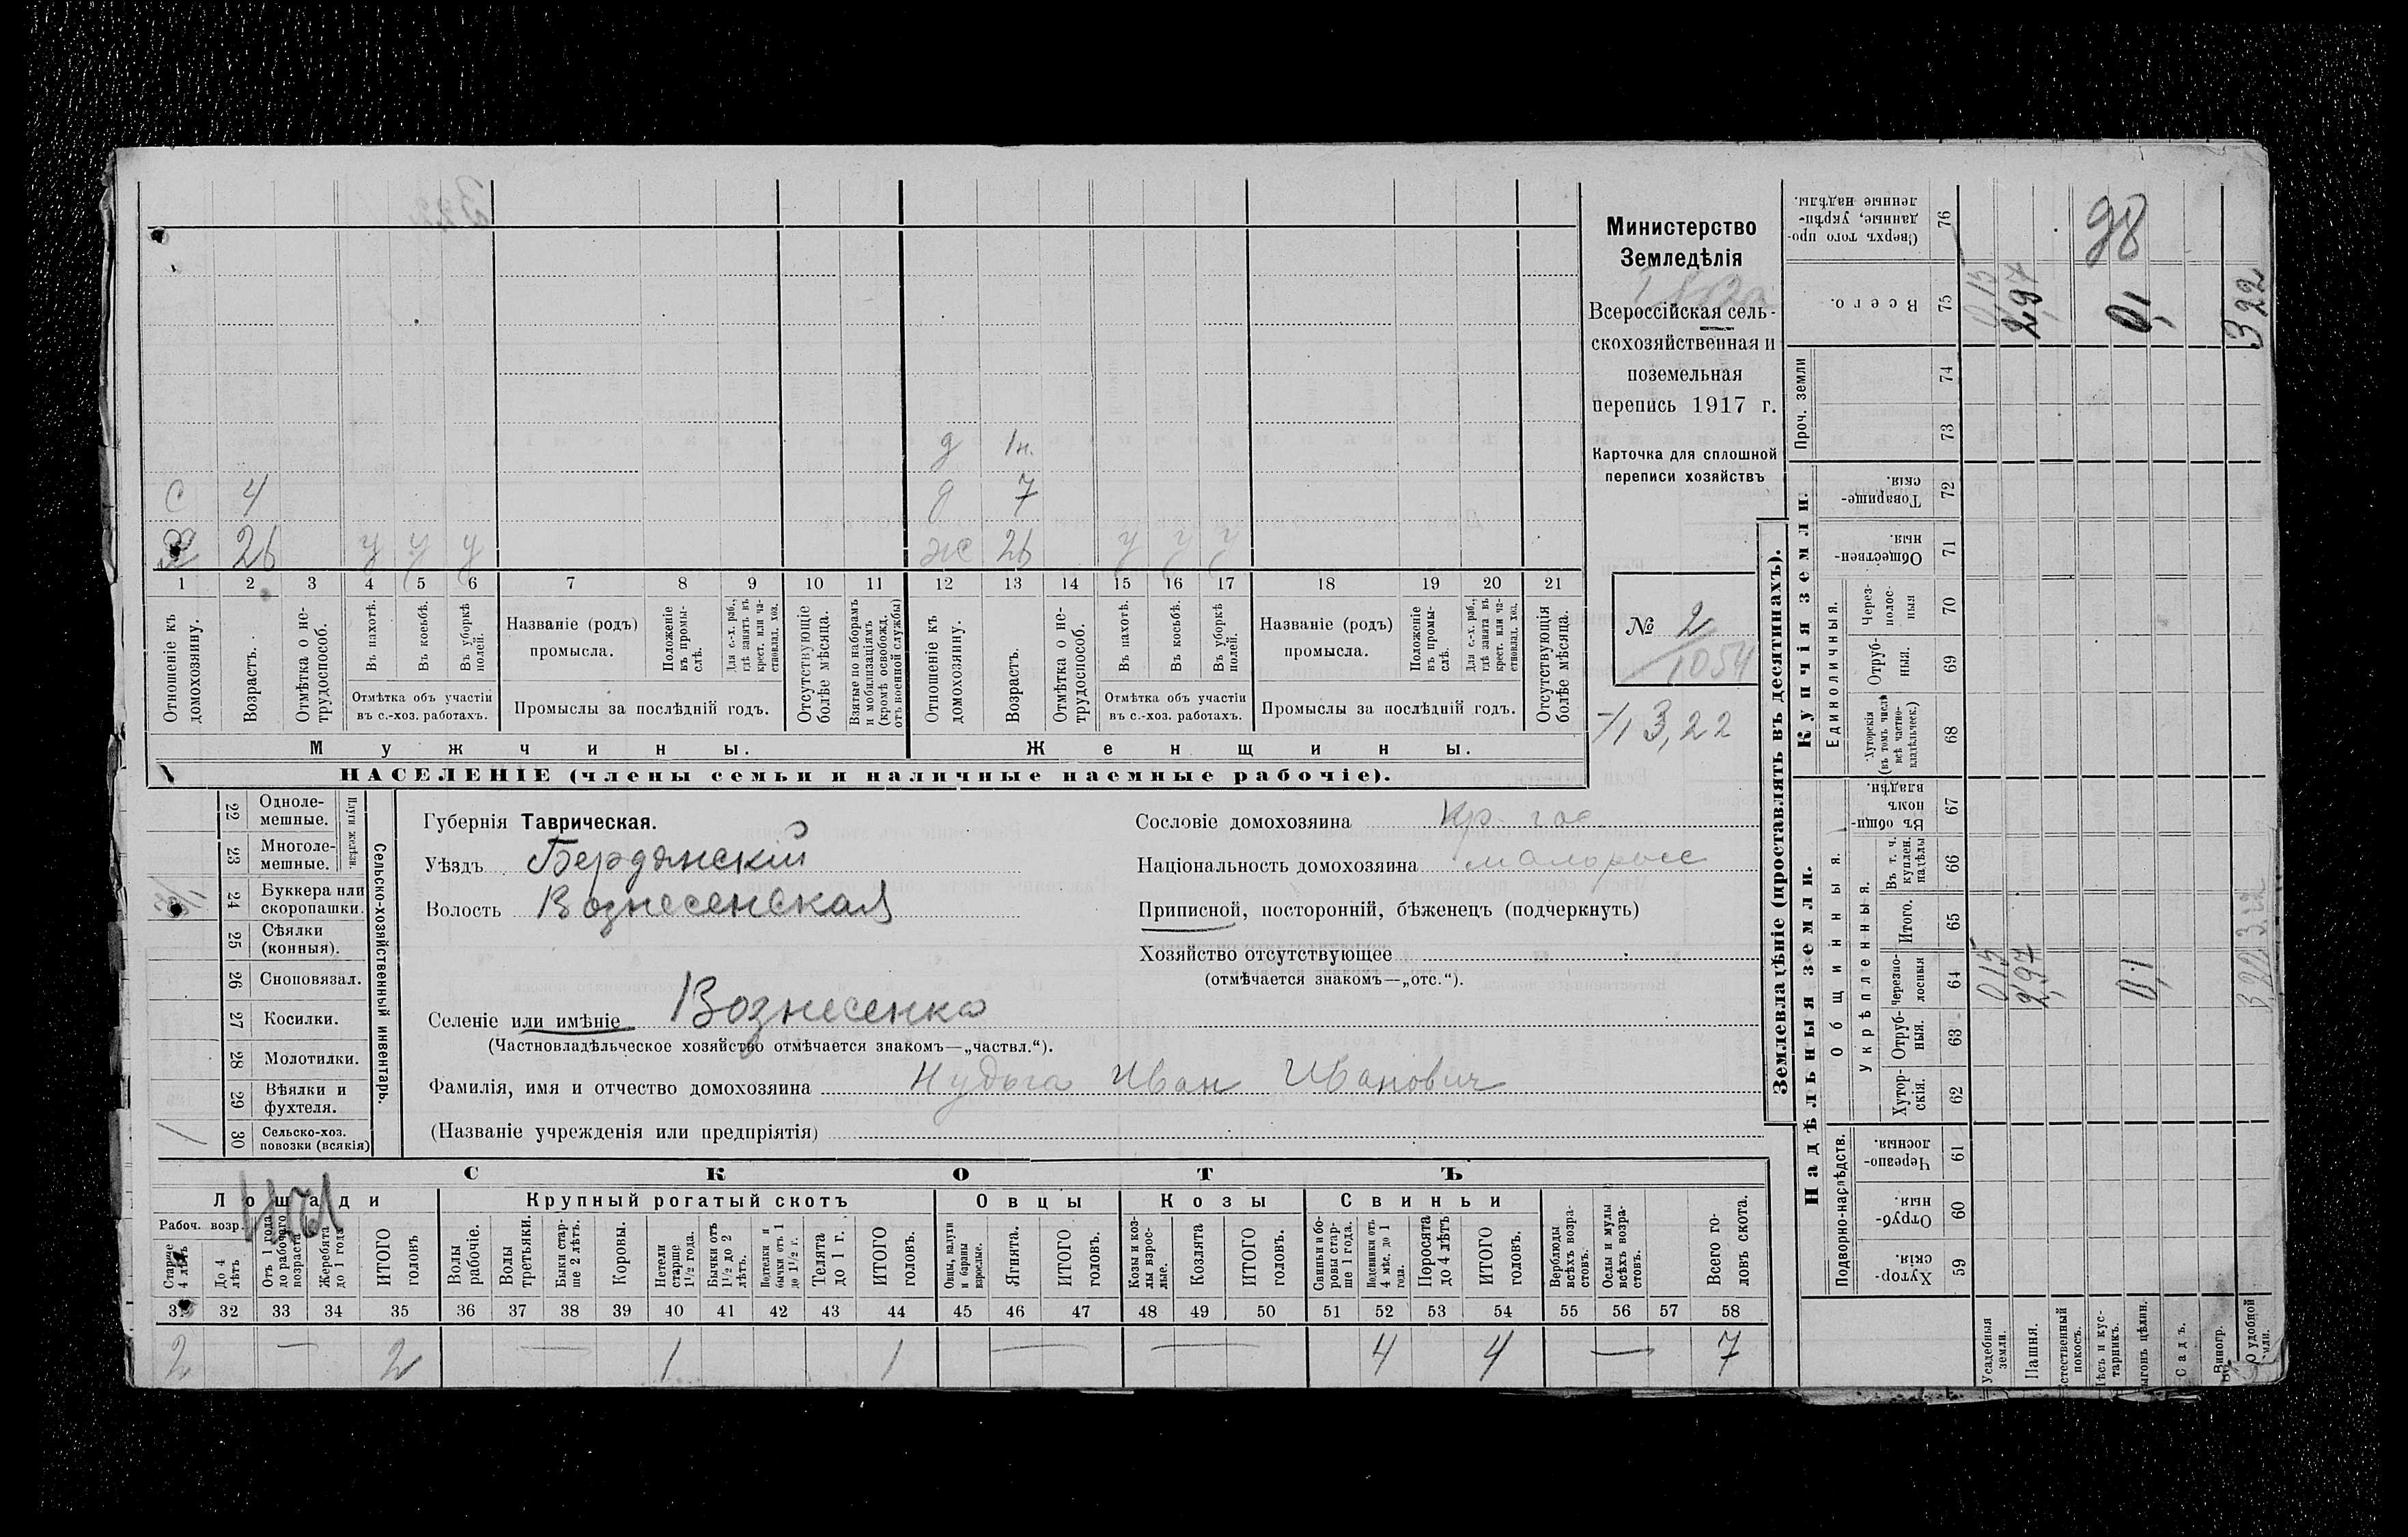 Министерство
Земледѣлія
Всероссійская сель-
скохозяйственная и
поземельная
перепись 1917 г.
Карточка для сплошной
переписи хозяйствъ
№ 2
1054
3,22
д 1н.
с 4 д 7
х 26 у у у ж 26 у у у
1 2 3 4 5 6 7 8 9 10 11 12 13 14 15 16 17 18 19 20 21
Отношеніе къ домохозяину.
Возрастъ.
Отмѣтка о не-трудоспособ.
Въ пахотѣ.
Въ косьбѣ.
Въ уборкѣ полей.
Отмѣтка объ участіи
въ с.-хоз. работахъ.
Названіе (родъ)
промысла.
Положеніе въ промы-слѣ.
Для с.-х. раб., гдѣ занятъ въ крест. или ча-стновлад. хоз.
Промыслы за послѣдній годъ.
Отсутствующіе болѣе мѣсяца.
Взятые по наборамъ и мобилизаціямъ (кромѣ освобожд. отъ военной службы)
Отношеніе къ домохозяину.
Возрастъ.
Отмѣтка о не-трудоспособ.
Въ пахотѣ.
Въ косьбѣ.
Въ уборкѣ полей.
Отмѣтка объ участіи
въ с.-хоз. работахъ.
Названіе (родъ)
промысла.
Положеніе въ промы-слѣ.
Для с.-х. раб., гдѣ занята въ крест. или ча-стновлад. хоз.
Промыслы за послѣдній годъ.
Отсутствующія болѣе мѣсяца.
Мужчины.
Женщины.
НАСЕЛЕНІЕ (члены семьи и наличные наемные рабочіе).
22 Одноле-мешные.
23 Многоле-мешные.
Плуги желѣзн.
24 Буккера или скоропашки.
25 Сѣялки (конныя).
26 Сноповязал.
27 Косилки.
28 Молотилки.
29 Вѣялки и фухтеля.
1 30 Сельско-хоз. повозки (всякія)
Сельско-хозяйственный инвентарь.
Губернія Таврическая.
Уѣздъ Бердянскій
Волость Вознесенская
Селеніе или имѣніе Вознесенка
(Частновладѣльческое хозяйство отмѣчается знакомъ—„частвл.“).
Фамилія, имя и отчество домохозяина Нудьга Иван Иванович
(Названіе учрежденія или предпріятія)
Сословіе домохозяина кр. гос
Національность домохозяина малоросс
Приписной, посторонній, бѣженецъ (подчеркнуть)
Хозяйство отсутствующее
(отмѣчается знакомъ—„отс.“).
СКОТЪ
Лошади Крупный рогатый скотъ Овцы Козы Свиньи
Рабоч. возр.
Старше 4 лѣтъ
До 4 лѣтъ
Отъ 1 года до рабочаго возраста
Жеребята до 1 года
ИТОГО головъ
Волы рабочіе.
Волы третьяки.
Быки стар-ше 2 лѣтъ.
Коровы.
Нетели старше 1½ года.
Бычки отъ 1½ до 2 лѣтъ.
Подтелки и бычки отъ 1 до 1½ г.
Телята до 1 г.
ИТОГО головъ.
Овцы, валухи и бараны взрослые.
Ягнята.
ИТОГО головъ.
Козы и коз-лы взрос-лые.
Козлята
ИТОГО головъ.
Свиньи и бо-ровы стар-ше 1 года.
Подсвинки отъ 4 мѣс. до 1 года.
Поросята до 4 лѣтъ
ИТОГО головъ.
Верблюды всѣхъ возра-стовъ.
Ослы и мулы всѣхъ возра-стовъ.
Всего го-ловъ скота.
31 32 33 34 35 36 37 38 39 40 41 42 43 44 45 46 47 48 49 50 51 52 53 54 55 56 57 58
2 — 2 — 1 1 — — 4 4 — 7
Землевладѣніе (проставлять въ десятинахъ).
Надѣльныя земли.
Купчія земли.
Проч. земли
Подворно-наслѣдств.
Общинныя.
укрѣпленныя.
Единоличныя.
Хутор-скія. 59
Отруб-ныя. 60
Черезпо-лосныя. 61
Хутор-скія. 62
Отруб-ныя. 63
Черезпо-лосныя 64
Итого. 65
Въ т. ч. куплен. надѣлы 66
Въ общи-номъ владѣн. 67
Хуторскія (въ томъ числѣ всѣ частно-владѣльческ.) 68
Отруб-ныя. 69
Через-полос-ныя 70
Обществен-ныя. 71
Товарище-скія. 72
73
74
Всего. 75
Сверхъ того про-данные, укрѣп-ленные надѣлы. 76
Усадебныя земли. 0,15 0,15
Пашня. 2,97 2,97
стественный покосъ.
ѣсъ и кус-тарникъ.
ыгонъ цѣлин. 0,1 0,1
Садъ.
Виногр.
о удобной мли. 3,22 322
98